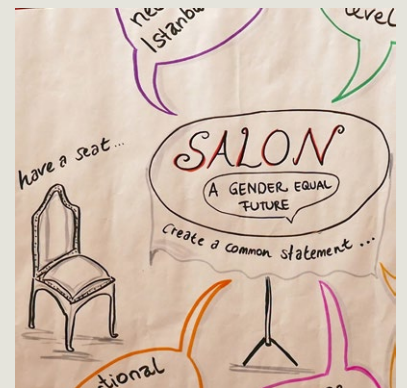 Istanbu
level
have a seat...
SALON
A GENDER EQUAL
FUTURE
Create a common statement ...
tional